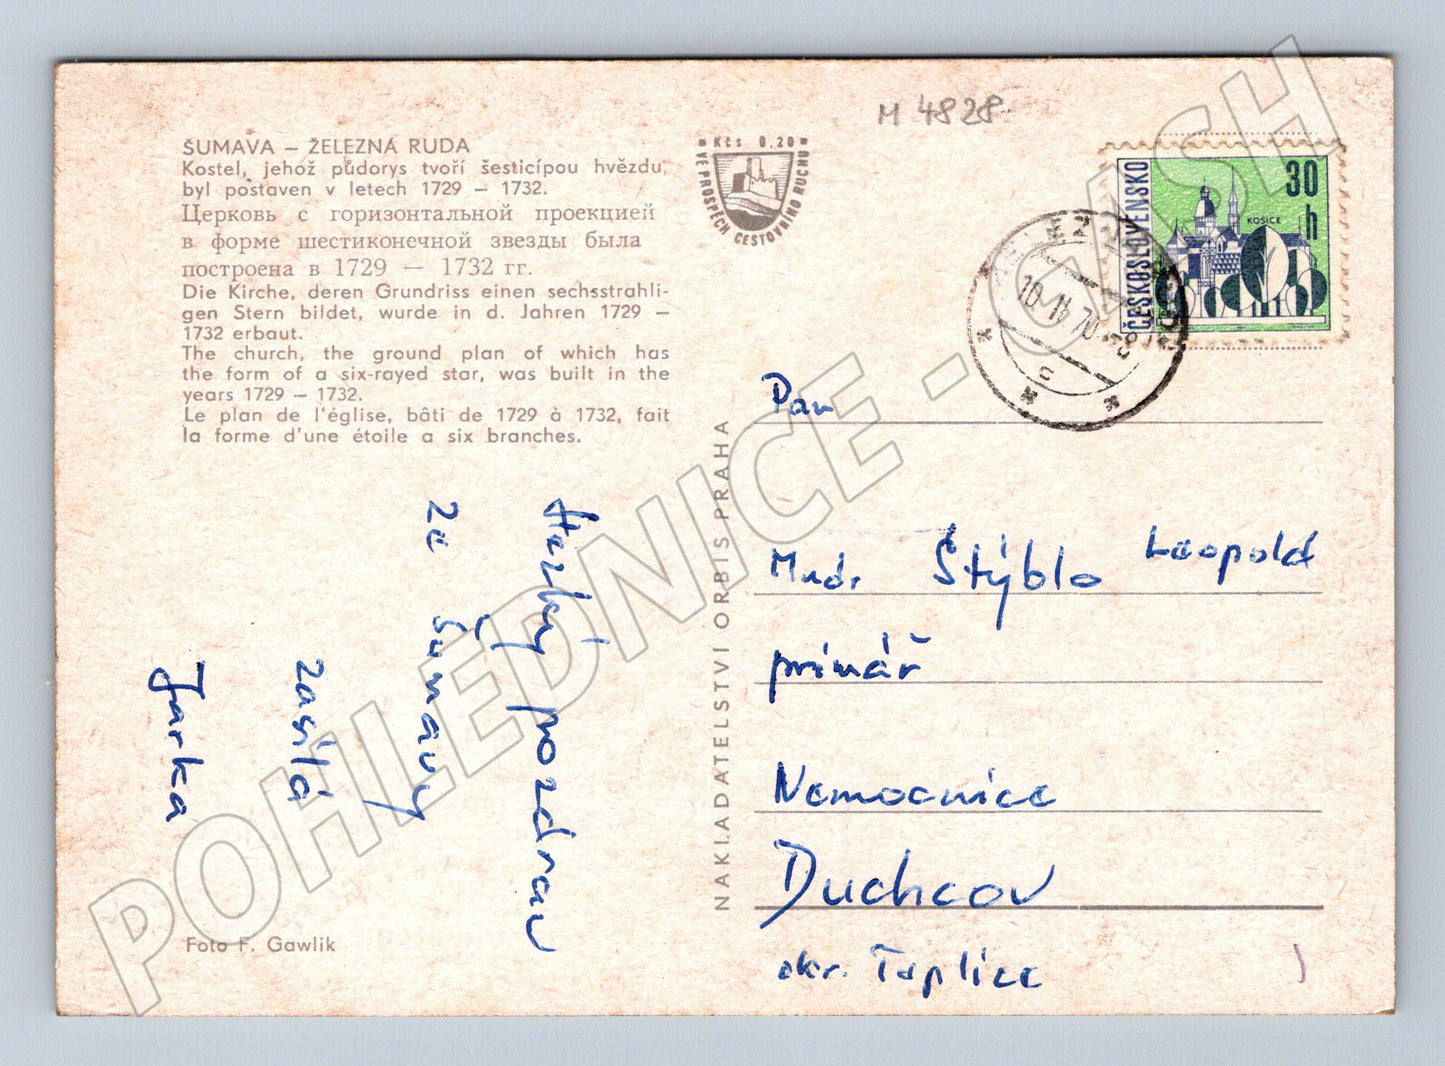 M 4828
ŠUMAVA – ŽELEZNÁ RUDA
Kostel, jehož půdorys tvoří šesticípou hvězdu,
byl postaven v letech 1729 – 1732.
Церковь с горизонтальной проекцией
в форме шестиконечной звезды была
построена в 1729 — 1732 гг.
Die Kirche, deren Grundriss einen sechsstrahli-
gen Stern bildet, wurde in d. Jahren 1729 –
1732 erbaut.
The church, the ground plan of which has
the form of a six-rayed star, was built in the
years 1729 – 1732.
Le plan de l'église, bâti de 1729 à 1732, fait
la forme d'une étoile a six branches.
Kčs 0,20
VE PROSPĚCH CESTOVNÍHO RUCHU
ČESKOSLOVENSKO
30 h
KOŠICE
Hezký pozdrav
ze Šumavy
zasílá
Jarka
Foto F. Gawlik
NAKLADATELSTVÍ ORBIS PRAHA
Pan
Mudr. Štýblo Leopold
primář
Nemocnice
Duchcov
okr. Teplice
POHLEDNICE - CASH